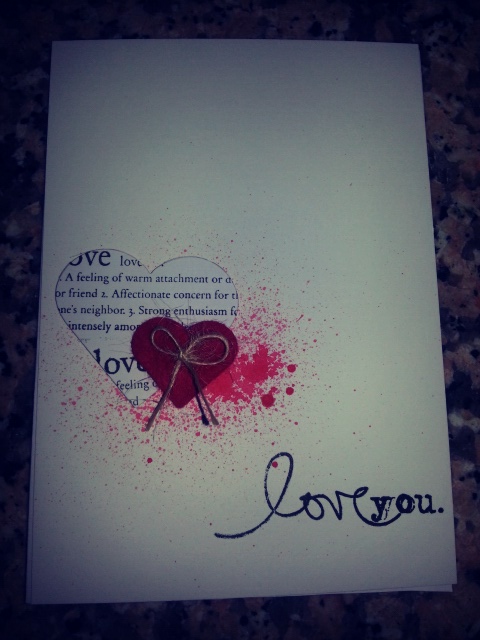 ove love
. A feeling of warm attachment or d
or friend 2. Affectionate concern for t
ne's neighbor. 3. Strong enthusiasm f
intensely amo
love
feeling
rd
love you.